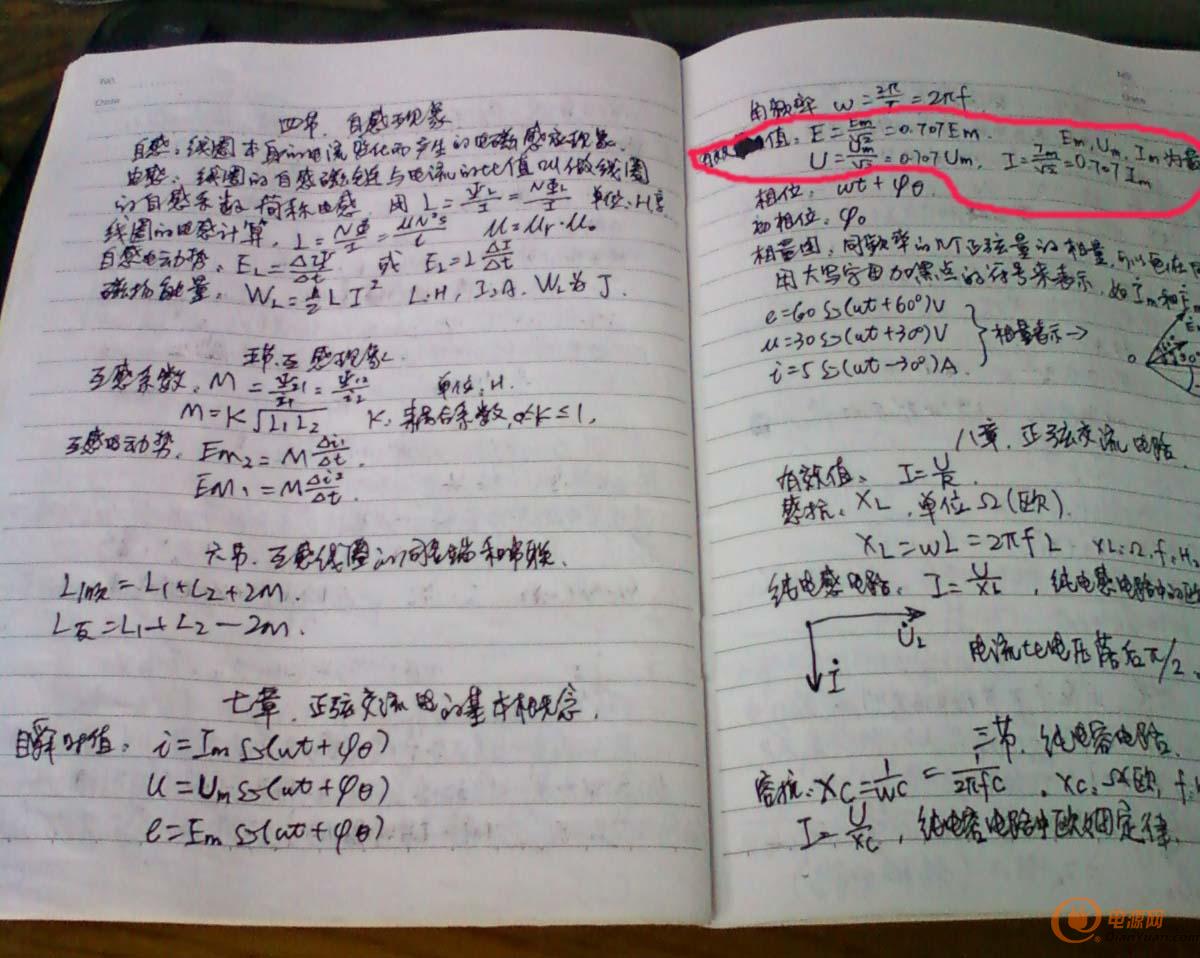 NO.
Date
四节、自感现象
自感:线圈本身的电流变化而产生的电磁感应现象.
电感:线圈的自感磁链与电流的比值叫做线圈
的自感系数 简称电感 用 L=Ψ_L/I=NΦ_L/I 单位:H,亨
线圈的电感计算, L=NΦ/I=μN²S/l μ=μr·μ₀
自感电动势: E_L=ΔΨ/Δt 或 E_L=L ΔI/Δt
磁场能量: W_L=½LI² L:H, I:A. W_L为J.
五节.互感现象.
互感系数, M=Ψ₂₁/I₁=Ψ₁₂/I₂ 单位:H.
M=K√L₁L₂ K:耦合系数, 0<K≤1,
互感电动势, Em₂=M Δi₁/Δt.
Em₁=M Δi₂/Δt.
六节.互感线圈的同名端和串联.
L顺=L₁+L₂+2M.
L反=L₁+L₂-2M.
七章.正弦交流电的基本概念.
瞬时值: i=Im Sin(wt+φθ)
u=Um Sin(wt+φθ)
e=Em Sin(wt+φθ).
NO.
角频率 w=2π/T=2πf
值: E=Em/√2=0.707Em. Em,Um,Im为
U=Um/√2=0.707Um, I=Im/√2=0.707Im
相位: wt+φθ
初相位: φ₀
相量图:同频率的几个正弦量的相量,可以画在同
用大写字母加黑点的符号来表示,如İm和Ėm
e=60Sin(wt+60°)V
u=30Sin(wt+30°)V }相量表示→
i=5Sin(wt-30°)A.
0
八章.正弦交流电路
有效值: I=U/R
感抗: XL,单位Ω(欧).
XL=wL=2πfL XL:Ω,f:H
纯电感电路: I=U/XL, 纯电感电路中的欧
U̇L
İ
电流比电压落后π/2.
三节.纯电容电路.
容抗: XC=1/wC=1/2πfC, XC:Ω欧, f:
I=U/XC, 纯电容电路中欧姆定律.
电源网
DianYuan.com